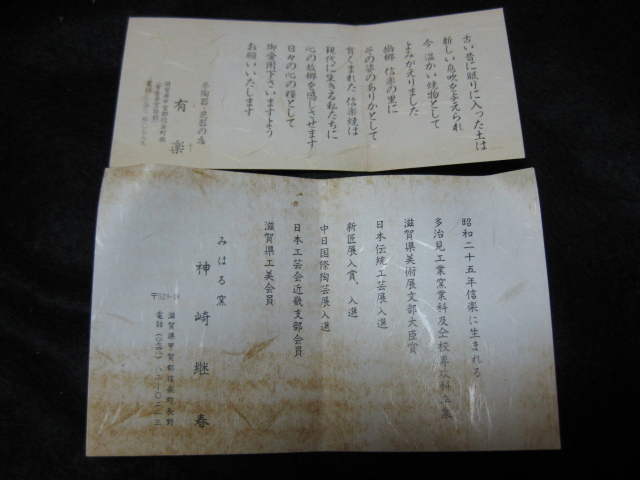 古い昔に眠りに入った土は
新しい息吹を与えられ
今 温かい焼物として
よみがえりました
幽郷 信楽の里に
その姿のありかとして
育くまれた 信楽焼は
現代に生きる私たちに
心の故郷を感じさせます
日々の心の糧として
御愛用下さいますよう
お願いいたします
陶器・民芸の店
有楽
滋賀県甲賀郡信楽町
昭和二十五年信楽に生まれる
多治見工業窯業科及仝校専攻科卒業
滋賀県美術展支部大臣賞
日本伝統工芸展入選
新匠展入賞、入選
中日国際陶芸展入選
日本工芸会近畿支部会員
滋賀県工美会員
みはる窯
神崎継春
〒529-18
滋賀県甲賀郡信楽町長野
電話(〇七四八)八二-〇二二三